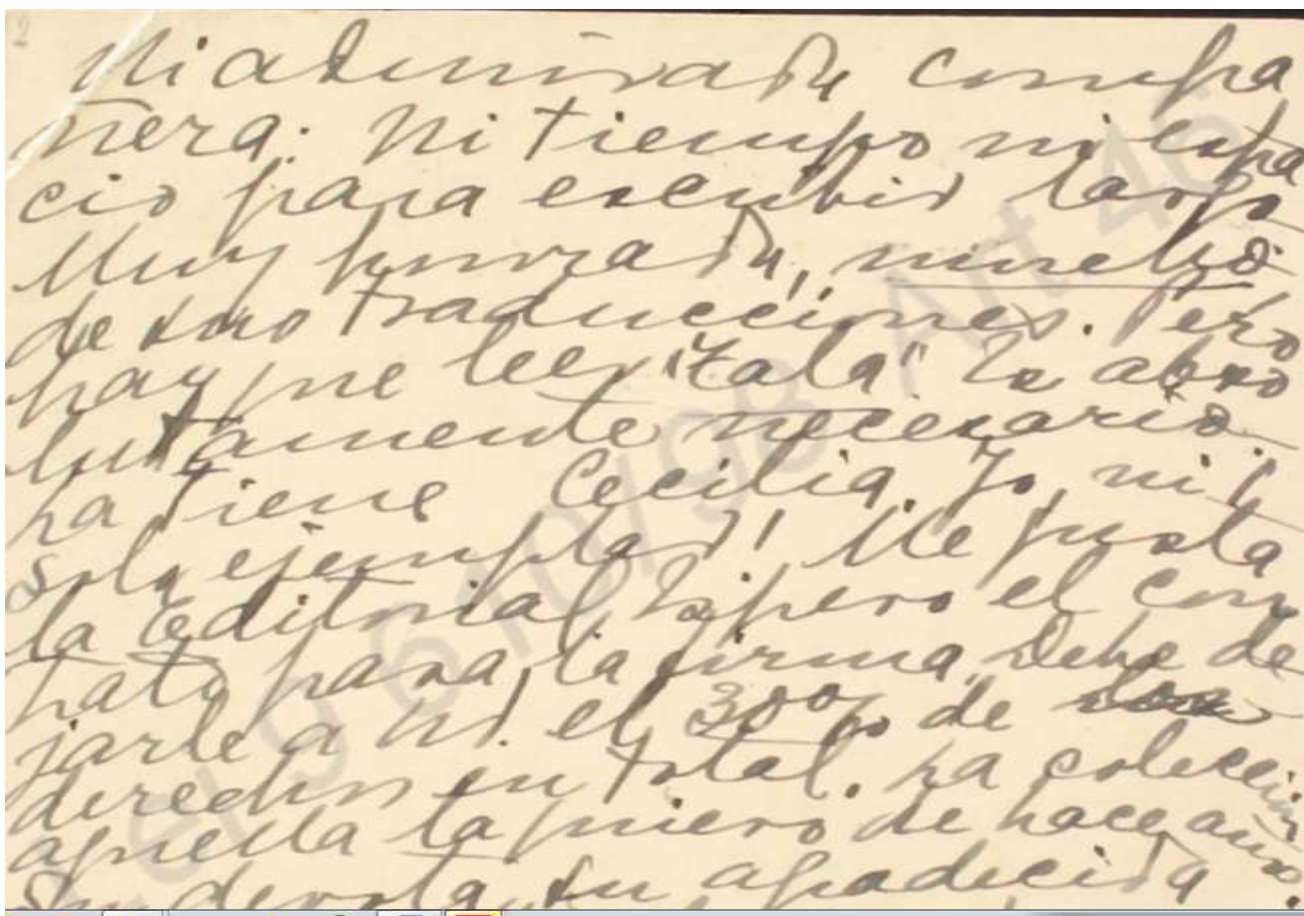 Mi admirada compa
ñera: Ni tiempo ni espa
cio para escribir largo
Muy honrada, mucho
de sus traducciones. Pero
hay que leer "Tala" Es abso
lutamente necesario.
La tiene Cecilia. Yo, ni 1
solo ejemplar! Me gusta
la Editorial Espero el con
trato para la firma. Debe de
jarle a Ud. el 30% de
derechos en total. La colección
aquella la quiero de hace años.
Su devota, su agradecida